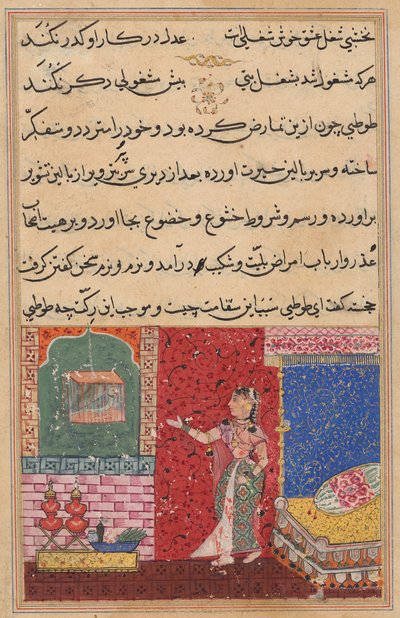 نخشبی شغل عشق خوش شغلی است عدل در کار او کدر نکند
هر که مشغول شد بشغل بیش مشغولی دگر نکند
طوطی چون ازین تمارض کرده بود و خود را متردد و متفکر
ساخته و سر ببالین حیرت آورده بعد از دیری سر پر تزویر از بالین
برآورده و رسم و شروط خشوع و خضوع بجا آورد و بر هیئت
عذر و ارباب امراض بلیت و درآمد و نرم نرم سخن گفتن گرفت
خجسته گفت ای طوطی سبب این سقامت چیست و موجب این چه طوطی